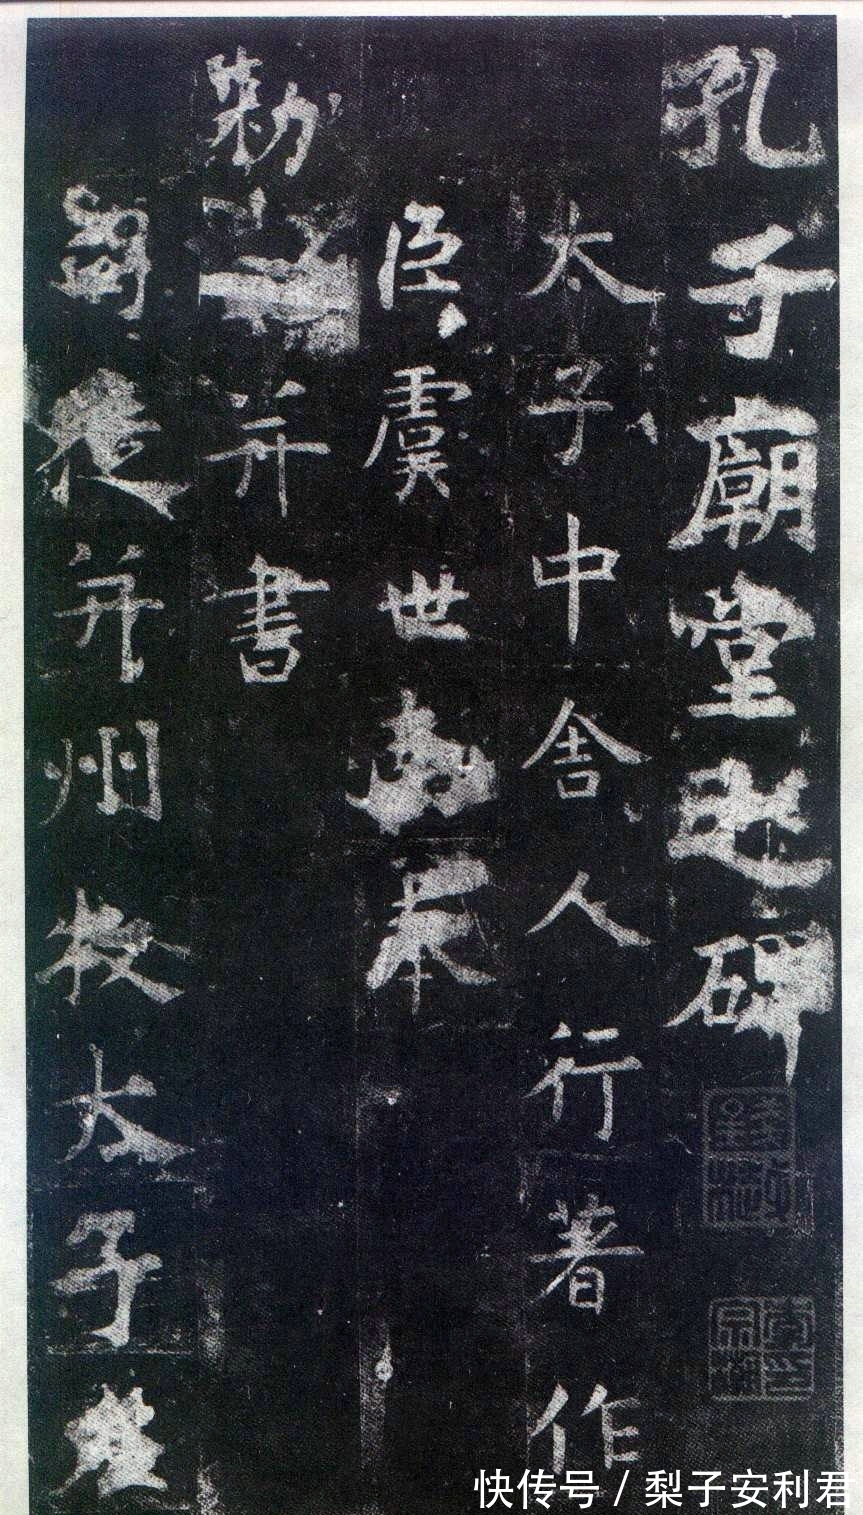 孔子廟堂之碑
太子中舍人行著作
臣虞世南奉
勑
并書
并州牧太子
快传号 / 梨子安利君